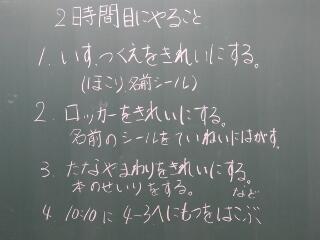 2時間目にやること
1. いす、つくえをきれいにする。
(ほこり、名前シール)
2. ロッカーをきれいにする。
名前のシールをていねいにはがす。
3. たなやまわりをきれいにする。
本のせいりをする。 など
4. 10:10に 4-3へにもつをはこぶ